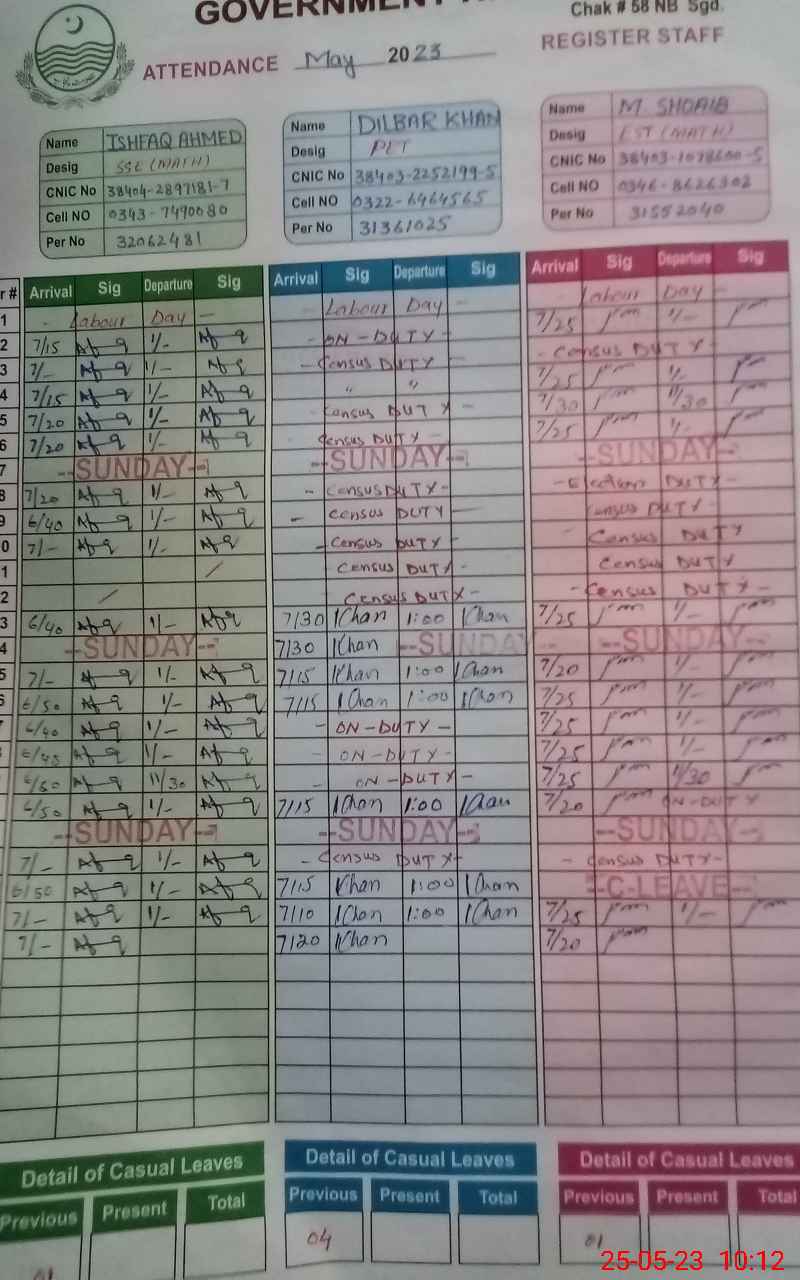 GOVERNMENT
Chak # 58 NB Sgd.
ATTENDANCE May 2023 REGISTER STAFF
Name ISHFAQ AHMED
Desig SSE (MATH)
CNIC No 38404-2897181-7
Cell NO 0343-7490080
Per No 32062481
Name DILBAR KHAN
Desig PET
CNIC No 38403-2252199-5
Cell NO 0322-6464565
Per No 31361025
Name M. SHOAIB
Desig EST (MATH)
CNIC No 38403-1078600-5
Cell NO 0346-8626302
Per No 31552040
r # Arrival Sig Departure Sig Arrival Sig Departure Sig Arrival Sig Departure Sig
1 - Labour Day - - Labour Day - - Labour Day -
2 7/15 1/- - ON-DUTY - 7/25 1/-
3 7/- 1/- - Census DUTY - - Census DUTY -
4 7/15 1/- " " 7/25 1/-
5 7/20 1/- Census DUTY - 7/30 11/30
6 7/20 1/- Census DUTY - 7/25 1/-
7 --SUNDAY-- --SUNDAY-- --SUNDAY--
8 7/20 1/- - Census DUTY - - Elections DUTY -
9 6/40 1/- - Census DUTY - Census DUTY -
0 7/- 1/- - Census DUTY - - Census DUTY
1 / Census DUTY - Census DUTY
2 / Census DUTY - - Census DUTY -
3 6/40 1/- 7/30 Khan 1:00 Khan 7/25 1/-
4 --SUNDAY-- 7/30 Khan --SUNDAY-- --SUNDAY--
5 7/- 1/- 7/15 Khan 1:00 Khan 7/20 1/-
6/50 1/- 7/15 Khan 1:00 Khan 7/25 1/-
6/40 1/- - ON-DUTY - 7/25 1/-
6/45 1/- - ON-DUTY - 7/25 1/-
6/50 11/30 - ON-DUTY - 7/25 11/30
6/50 1/- 7/15 Khan 1:00 Khan 7/20 ON-DUTY
--SUNDAY-- --SUNDAY-- --SUNDAY--
7/- 1/- - Census DUTY - - Census DUTY -
6/50 1/- 7/15 Khan 1:00 Khan --C-LEAVE--
7/- 1/- 7/10 Khan 1:00 Khan 7/25 1/-
7/- 7/20 Khan 7/20
Detail of Casual Leaves Detail of Casual Leaves Detail of Casual Leaves
Previous Present Total Previous Present Total Previous Present Total
01 04 01
25-05-23 10:12